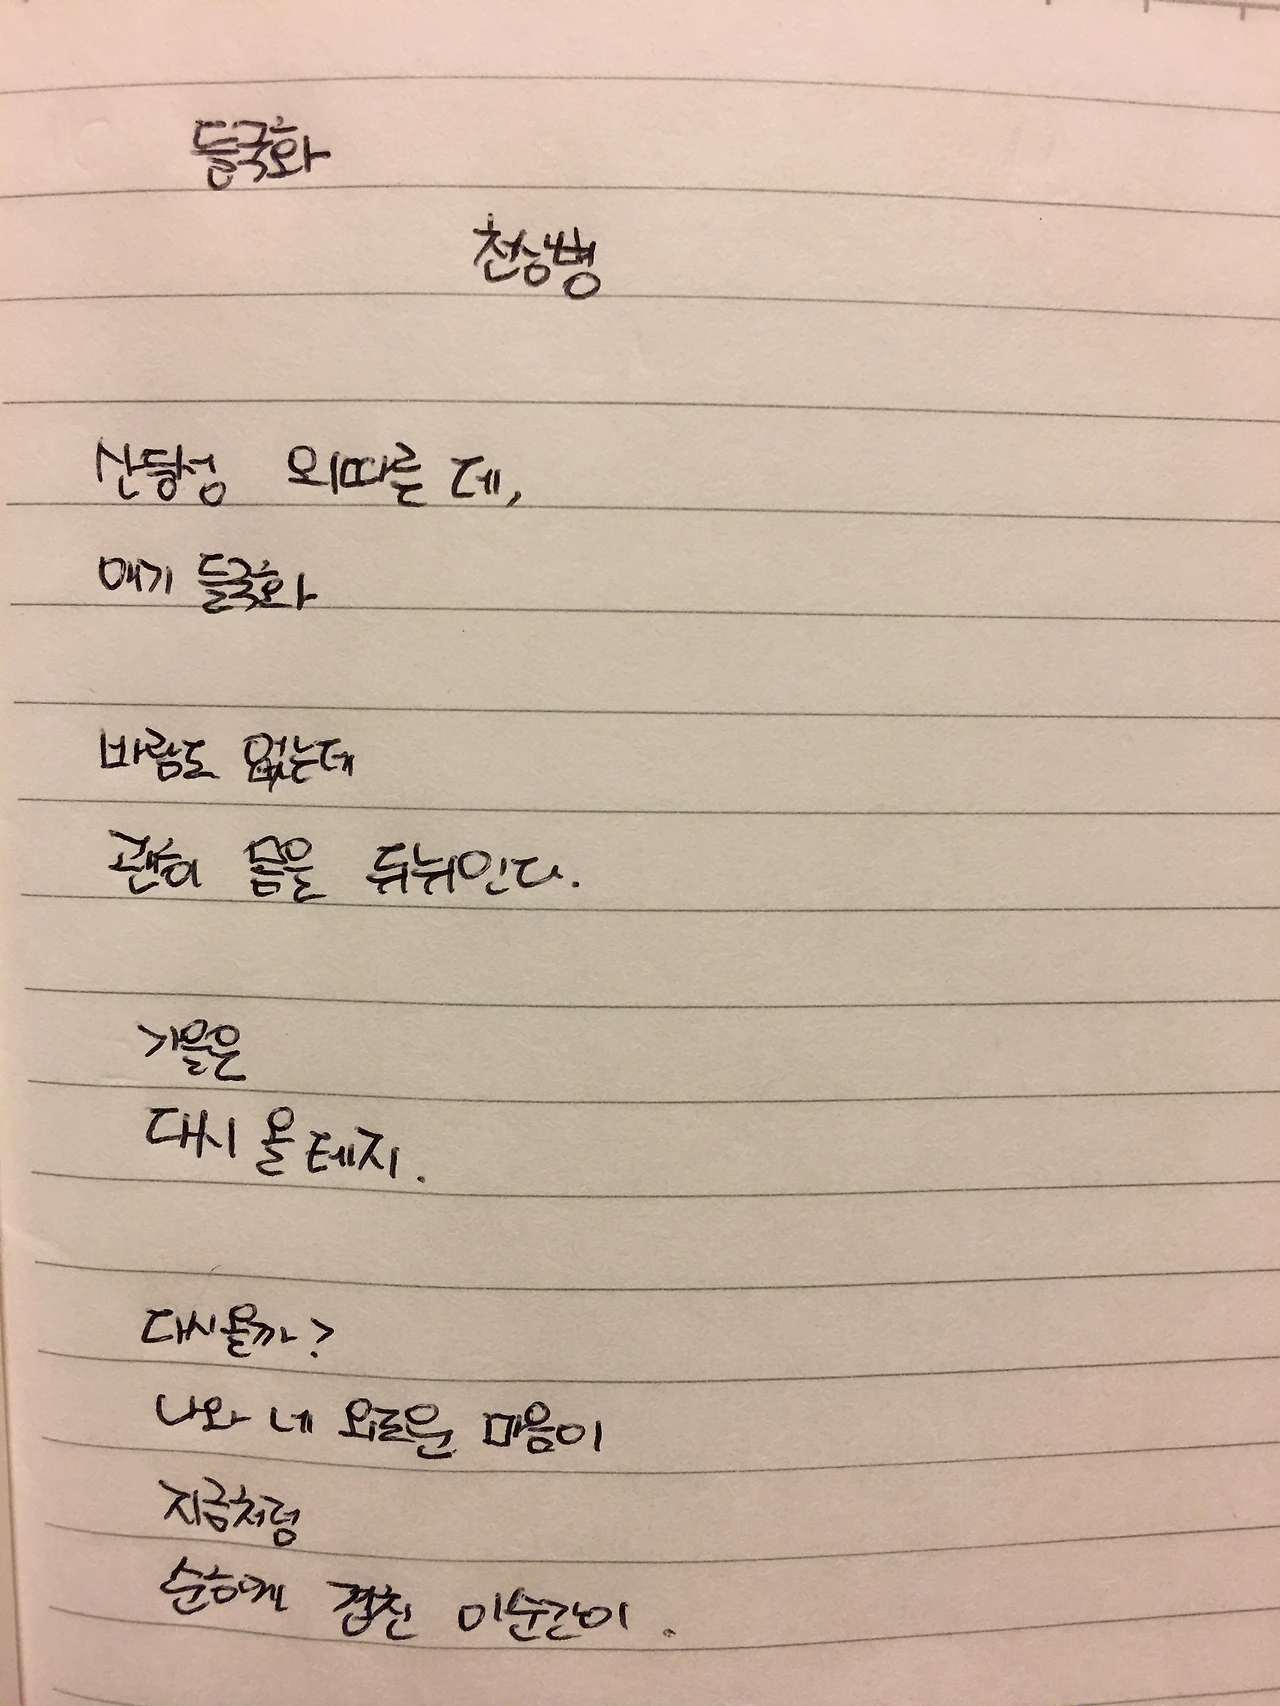 들국화
천상병
산등성 외따른 데,
애기 들국화
바람도 없는데
괜히 몸을 뒤뉘인다.
가을은
다시 올 테지.
다시올까?
나와 네 외로운 마음이
지금처럼
순하게 겹친 이순간이.